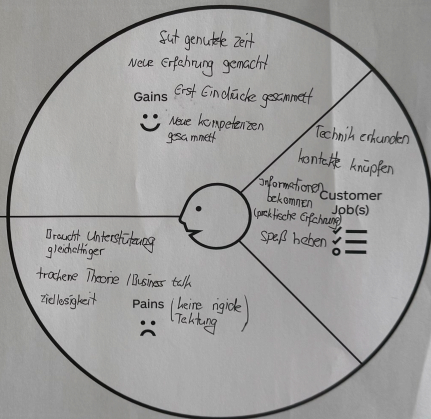 Gut genutzte Zeit
Neue Erfahrung gemacht
Gains
Erst Eindrücke gesammelt
Neue Kompetenzen
gesammelt
Technik erkunden
kontakte knüpfen
Informationen
bekommen
(praktische Erfahrung)
Spaß haben
Customer
Job(s)
Braucht Unterstützung
gleichaltriger
trockene Theorie / Business talk
Ziellosigkeit
Pains
(keine rigide
Taktung)